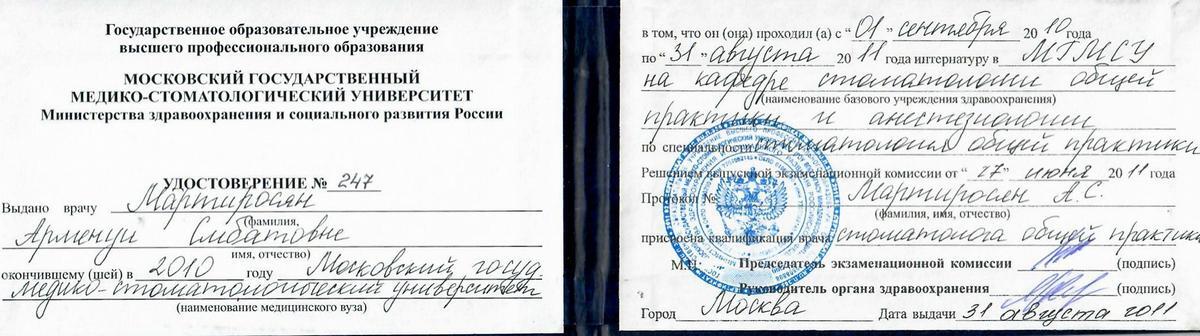 Государственное образовательное учреждение
высшего профессионального образования
МОСКОВСКИЙ ГОСУДАРСТВЕННЫЙ
МЕДИКО-СТОМАТОЛОГИЧЕСКИЙ УНИВЕРСИТЕТ
Министерства здравоохранения и социального развития России
УДОСТОВЕРЕНИЕ № 247
Выдано врачу Мартиросян
(фамилия,
Арменуи Смбатовне
имя, отчество)
окончившему (шей) в 2010 году Московский госуд
медико-стоматологический университет
(наименование медицинского вуза)
в том, что он (она) проходил (а) с "01" сентября 2010 года
по "31" августа 2011 года интернатуру в МГМСУ
на кафедре стоматологии общей
(наименование базового учреждения здравоохранения)
практики и анестезиологии
по специальности стоматология общей практики
Решением выпускной экзаменационной комиссии от "27" июня 2011 года
Протокол № Мартиросян А.С.
(фамилия, имя, отчество)
присвоена квалификация врача стоматолога общей практики
М.П. Председатель экзаменационной комиссии (подпись)
Руководитель органа здравоохранения (подпись)
Город Москва Дата выдачи 31 августа 2011